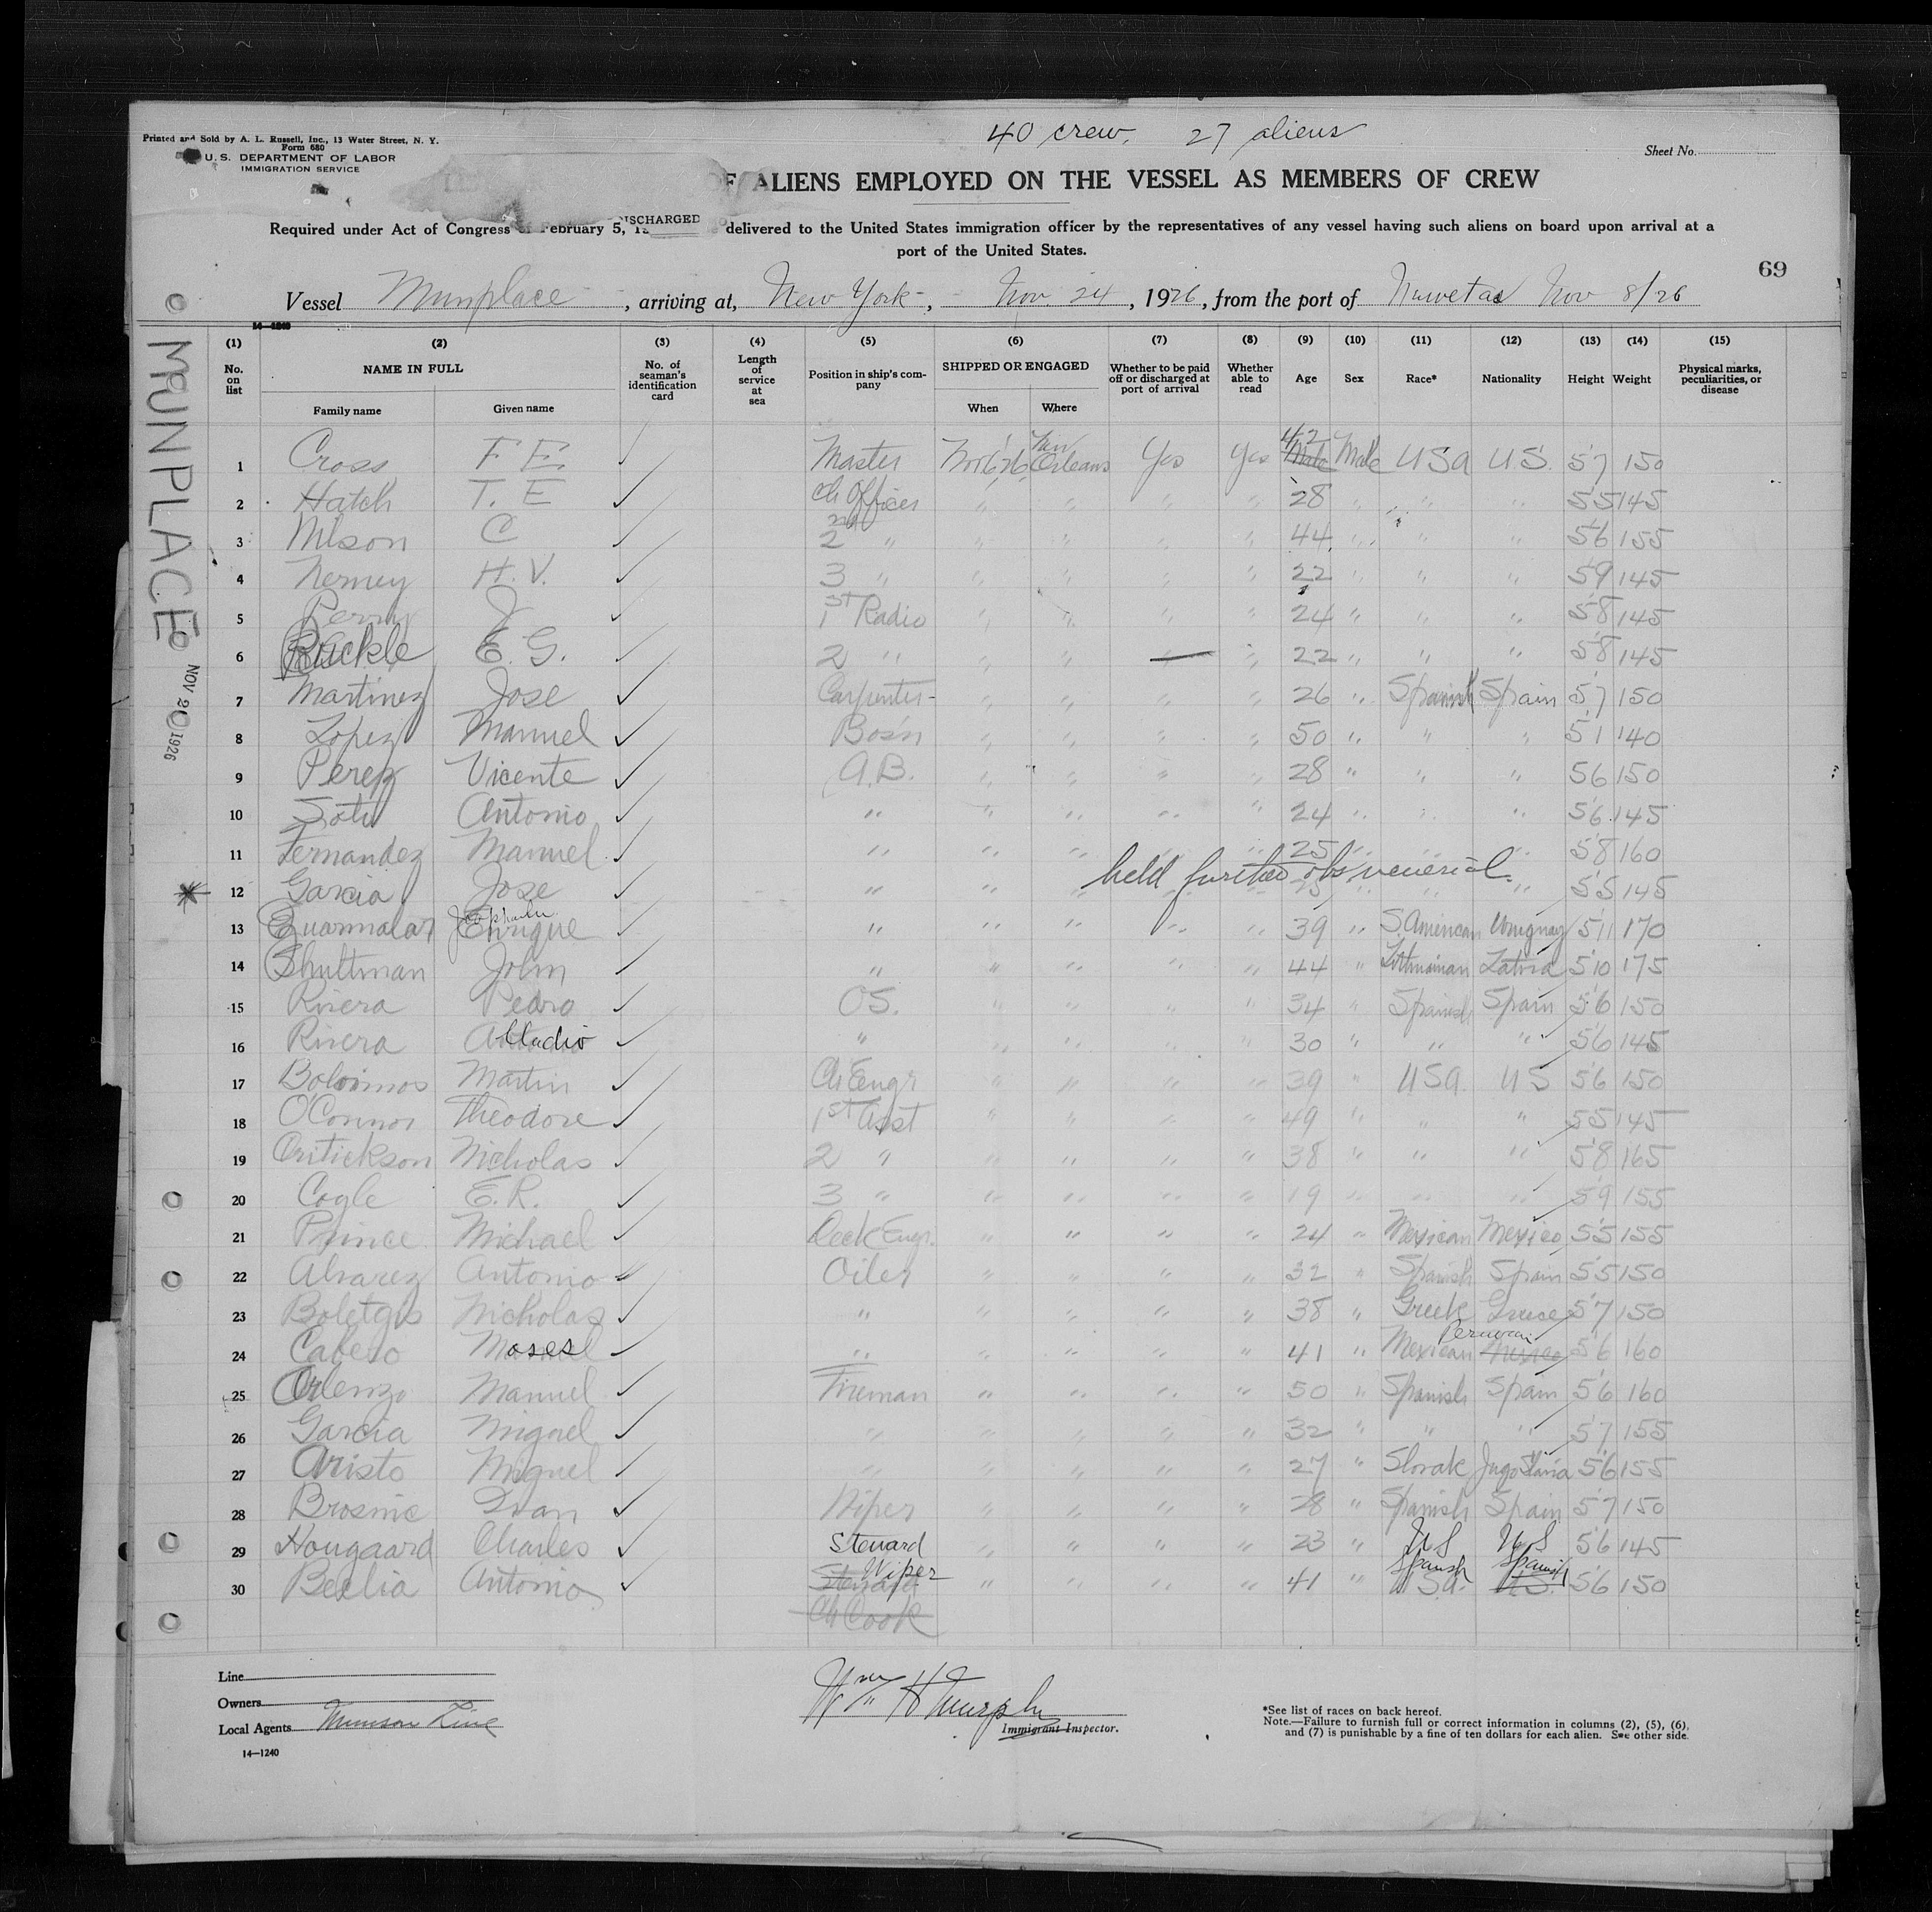 40 crew, 27 aliens
Printed and Sold by A. L. Russell, Inc., 13 Water Street, N. Y.
Form 680
U. S. DEPARTMENT OF LABOR
IMMIGRATION SERVICE
Sheet No.
OF ALIENS EMPLOYED ON THE VESSEL AS MEMBERS OF CREW
DISCHARGED
Required under Act of Congress of February 5, 19 delivered to the United States immigration officer by the representatives of any vessel having such aliens on board upon arrival at a
port of the United States.
69
Vessel Munplace, arriving at, New York, Nov 24, 1926, from the port of Nuvetas Nov 8/26
14—1240
MUNPLACE
NOV 2 1926
(1) (2) (3) (4) (5) (6) (7) (8) (9) (10) (11) (12) (13) (14) (15)
No. on list NAME IN FULL No. of seaman's identification card Length of service at sea Position in ship's company SHIPPED OR ENGAGED Whether to be paid off or discharged at port of arrival Whether able to read Age Sex Race* Nationality Height Weight Physical marks, peculiarities, or disease
Family name Given name When Where
1 Cross F E. Master Nov 6 26 New Orleans Yes Yes 42 Male Male USA US. 5'7 150
2 Hatch T. E Ch Officer " " " " 28 " " " 5'5 145
3 Nilson C 2nd " " " " " 44 " " " 5'6 155
4 Nerney H. V. 3 " " " " " 22 " " " 5'9 145
5 Perry J 1st Radio " " " " 24 " " " 5'8 145
6 Ruckle E. G. 2 " " " — " 22 " " " 5'8 145
7 Martinez Jose Carpenter " " " " 26 " Spanish Spain 5'7 150
8 Lopez Manuel Bos'n " " " " 50 " " " 5'1 140
9 Perez Vicente A.B. " " " " 28 " " " 5'6 150
10 Soto Antonio " " " " " 24 " " " 5'6 145
11 Fernandez Manuel " " " " " 25 " " " 5'8 160
12 Garcia Jose " " " held further obs venereal. " 5'5 145
13 Enrique " " " " " 39 " S. American Uruguay 5'11 170
14 Shultman John " " " " " 44 " Lithuanian Latvia 5'10 175
15 Rivera Pedro OS. " " " " 34 " Spanish Spain 5'6 150
16 Rivera Cladio " " " " " 30 " " " 5'6 145
17 Martin Ch Engr " " " " 39 " USA. US 5'6 150
18 O'Connor Theodore 1st Asst " " " " 49 " " " 5'5 145
19 Nicholas 2 " " " " " 38 " " " 5'8 165
20 Cogle E. R. 3 " " " " " 19 " " " 5'9 155
21 Prince Michael Deck Engr. " " " " 24 " Mexican Mexico 5'5 155
22 Alvarez Antonio Oiler " " " " 32 " Spanish Spain 5'5 150
23 Boletgis Nicholas " " " " " 38 " Greek Greece 5'7 150
24 Cabero Moses " " " " " 41 " Mexican Peruvian Mexico 5'6 160
25 Manuel Fireman " " " " 50 " Spanish Spain 5'6 160
26 Garcia Miguel " " " " " 32 " " " 5'7 155
27 Aristo Miguel " " " " " 27 " Slovak Jugo Slavia 5'6 155
28 Brosnic Ivan Wiper " " " " 28 " Spanish Spain 5'7 150
29 Hougaard Charles Steward " " " " 23 " U S U S 5'6 145
30 Antonio Steward Wiper " " " " 41 " Spanish USA. Spanish U.S. 5'6 150
Ch Cook
Line
Owners
Local Agents Munson Line
14—1240
Wm H Murphy
Immigrant Inspector.
*See list of races on back hereof.
Note.—Failure to furnish full or correct information in columns (2), (5), (6),
and (7) is punishable by a fine of ten dollars for each alien. See other side.